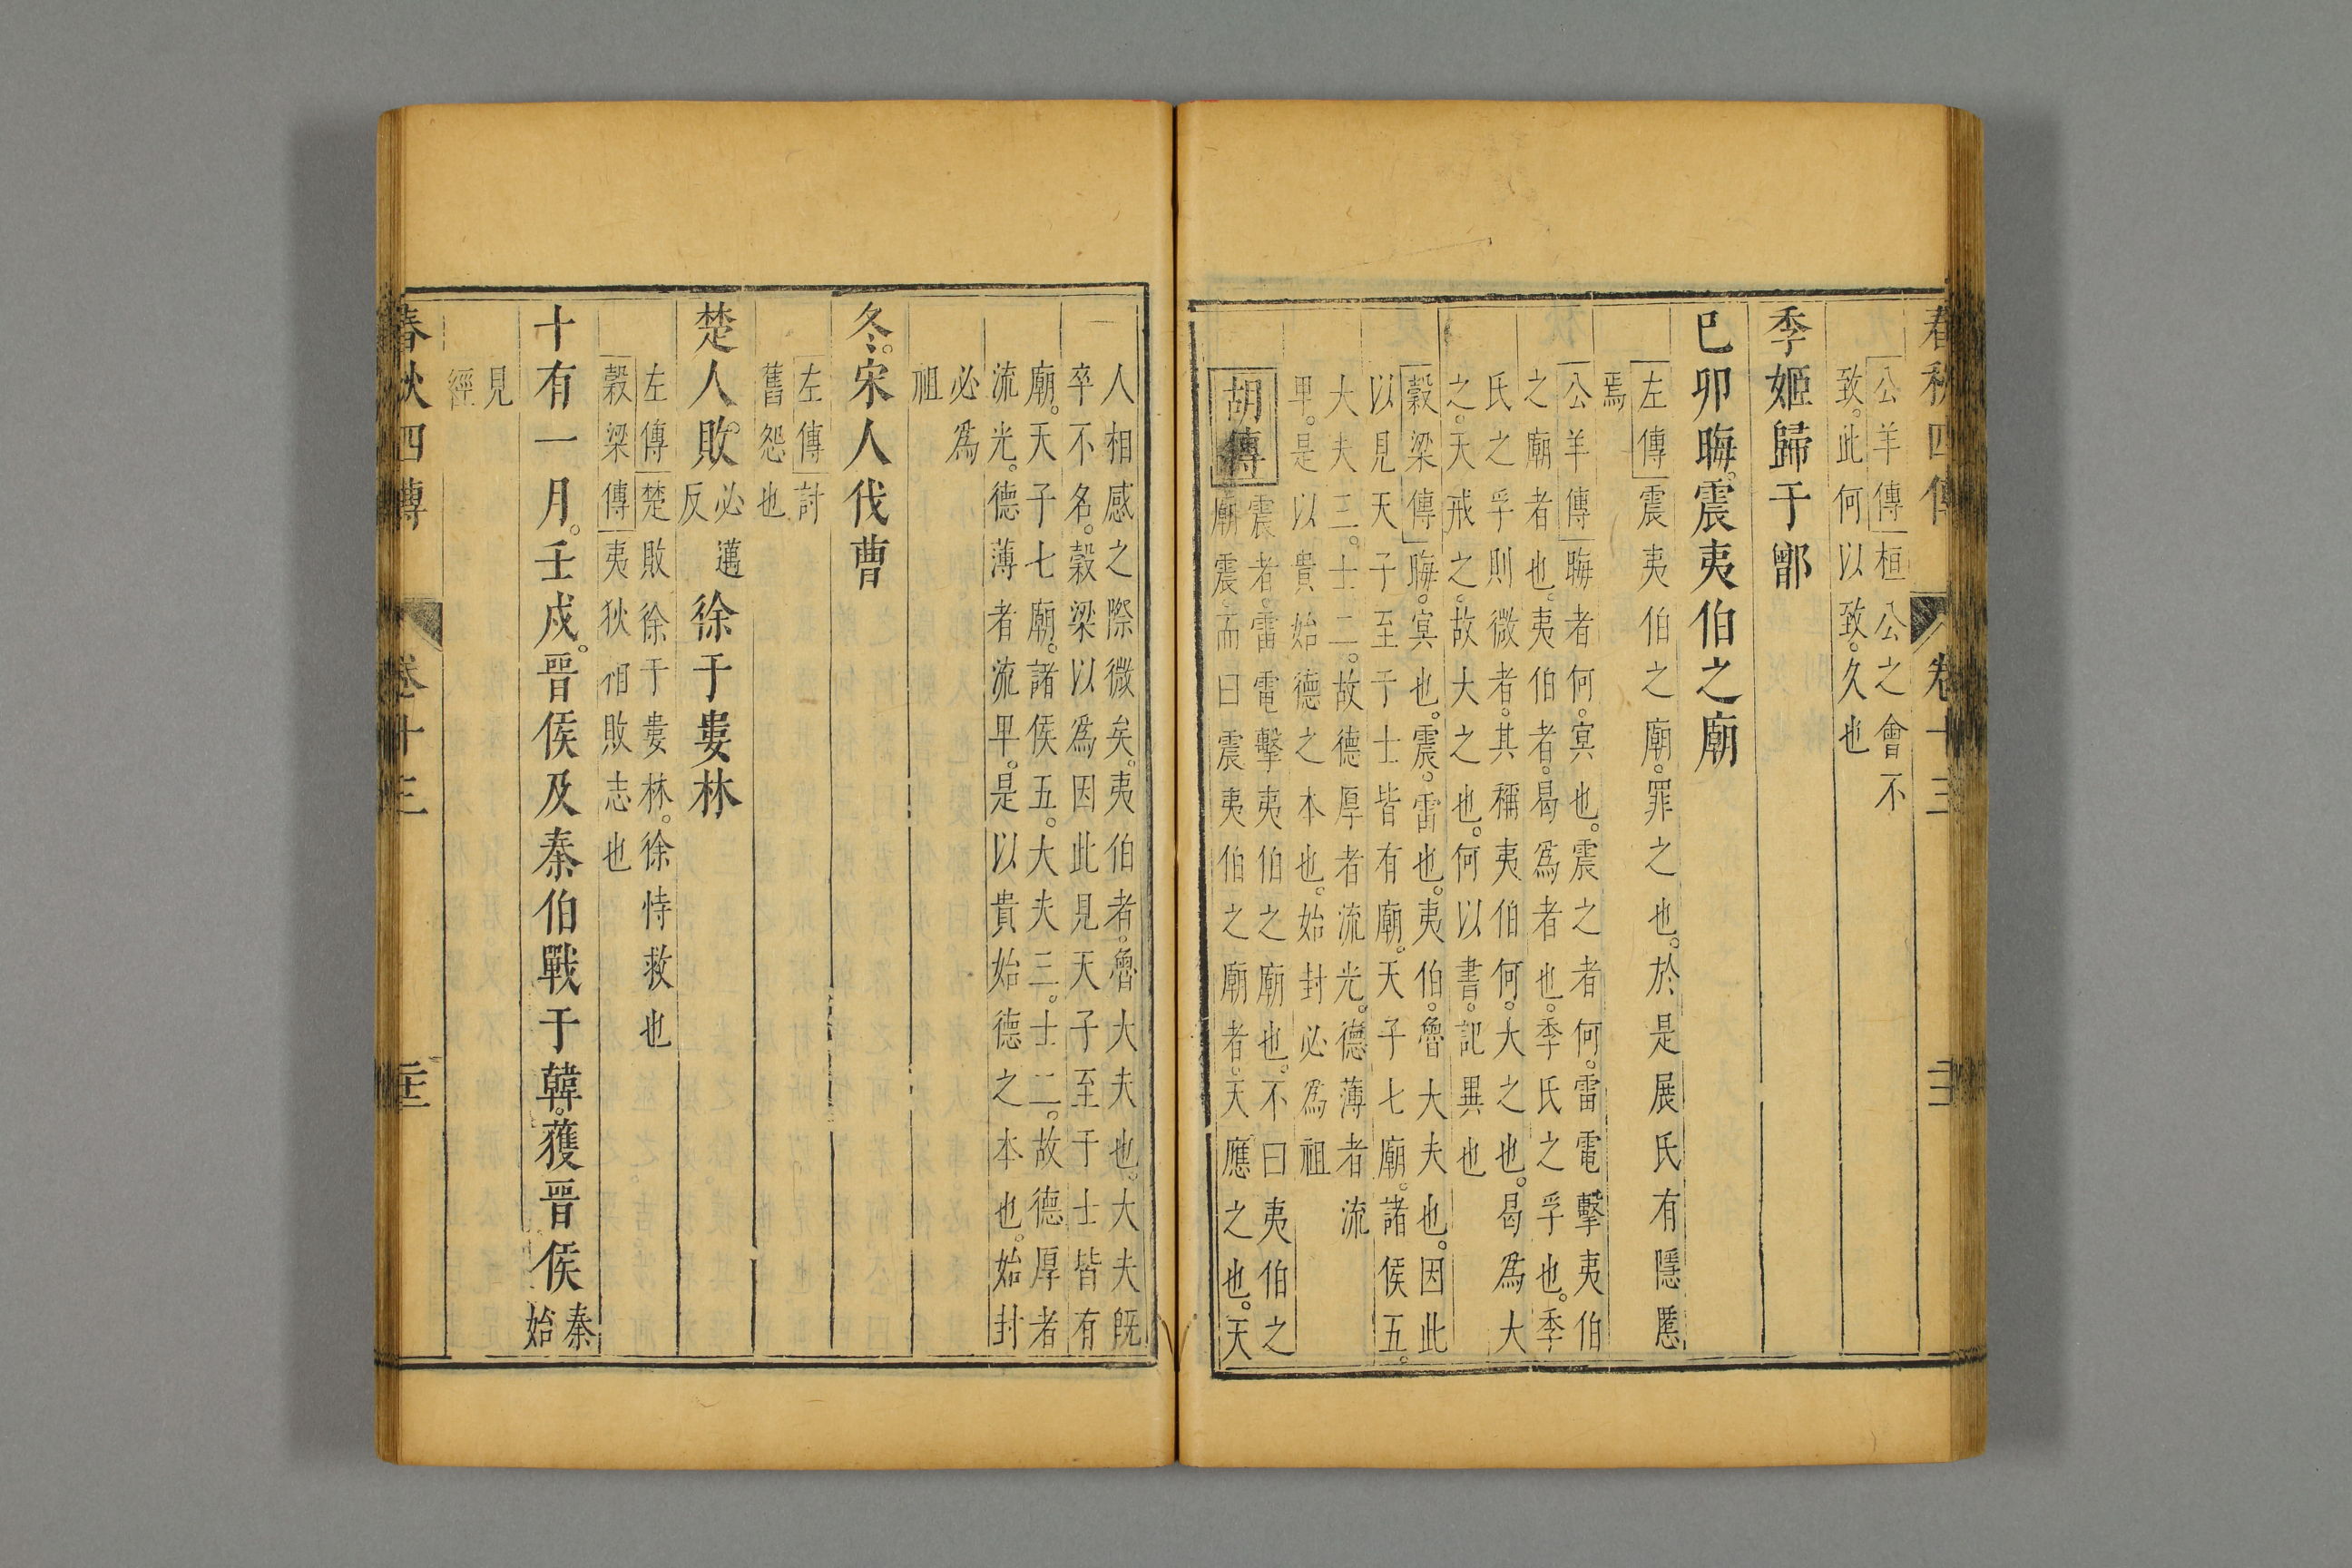 春秋四傳 卷十三
公羊傳桓公之會不
致。此何以致。久也
季姬歸于鄫
己卯晦。震夷伯之廟
左傳震夷伯之廟。罪之也。於是展氏有隱慝
焉
公羊傳晦者何。冥也。震之者何。雷電擊夷伯
之廟者也。夷伯者。曷爲者也。季氏之孚也。季
氏之孚則微者。其稱夷伯何。大之也。曷爲大
之。天戒之。故大之也。何以書。記異也
穀梁傳晦。冥也。震。雷也。夷伯。魯大夫也。因此
以見天子至于士皆有廟。天子七廟。諸侯五。
大夫三。士二。故德厚者流光。德薄者流
卑。是以貴始德之本也。始封必爲祖
胡傳震者。雷電擊夷伯之廟也。不曰夷伯之
廟震。而曰震夷伯之廟者。天應之也。天
人相感之際微矣。夷伯者。魯大夫也。大夫既
卒不名。穀梁以爲因此見天子至于士皆有
廟。天子七廟。諸侯五。大夫三。士二。故德厚者
流光。德薄者流卑。是以貴始德之本也。始封
必爲
祖
冬。宋人伐曹
左傳討
舊怨也
楚人敗必邁反徐于婁林
左傳楚敗徐于婁林。徐恃救也
穀梁傳夷狄相敗志也
十有一月。壬戌。晉侯及秦伯戰于韓。獲晉侯秦始
見
經
春秋四傳 卷十三